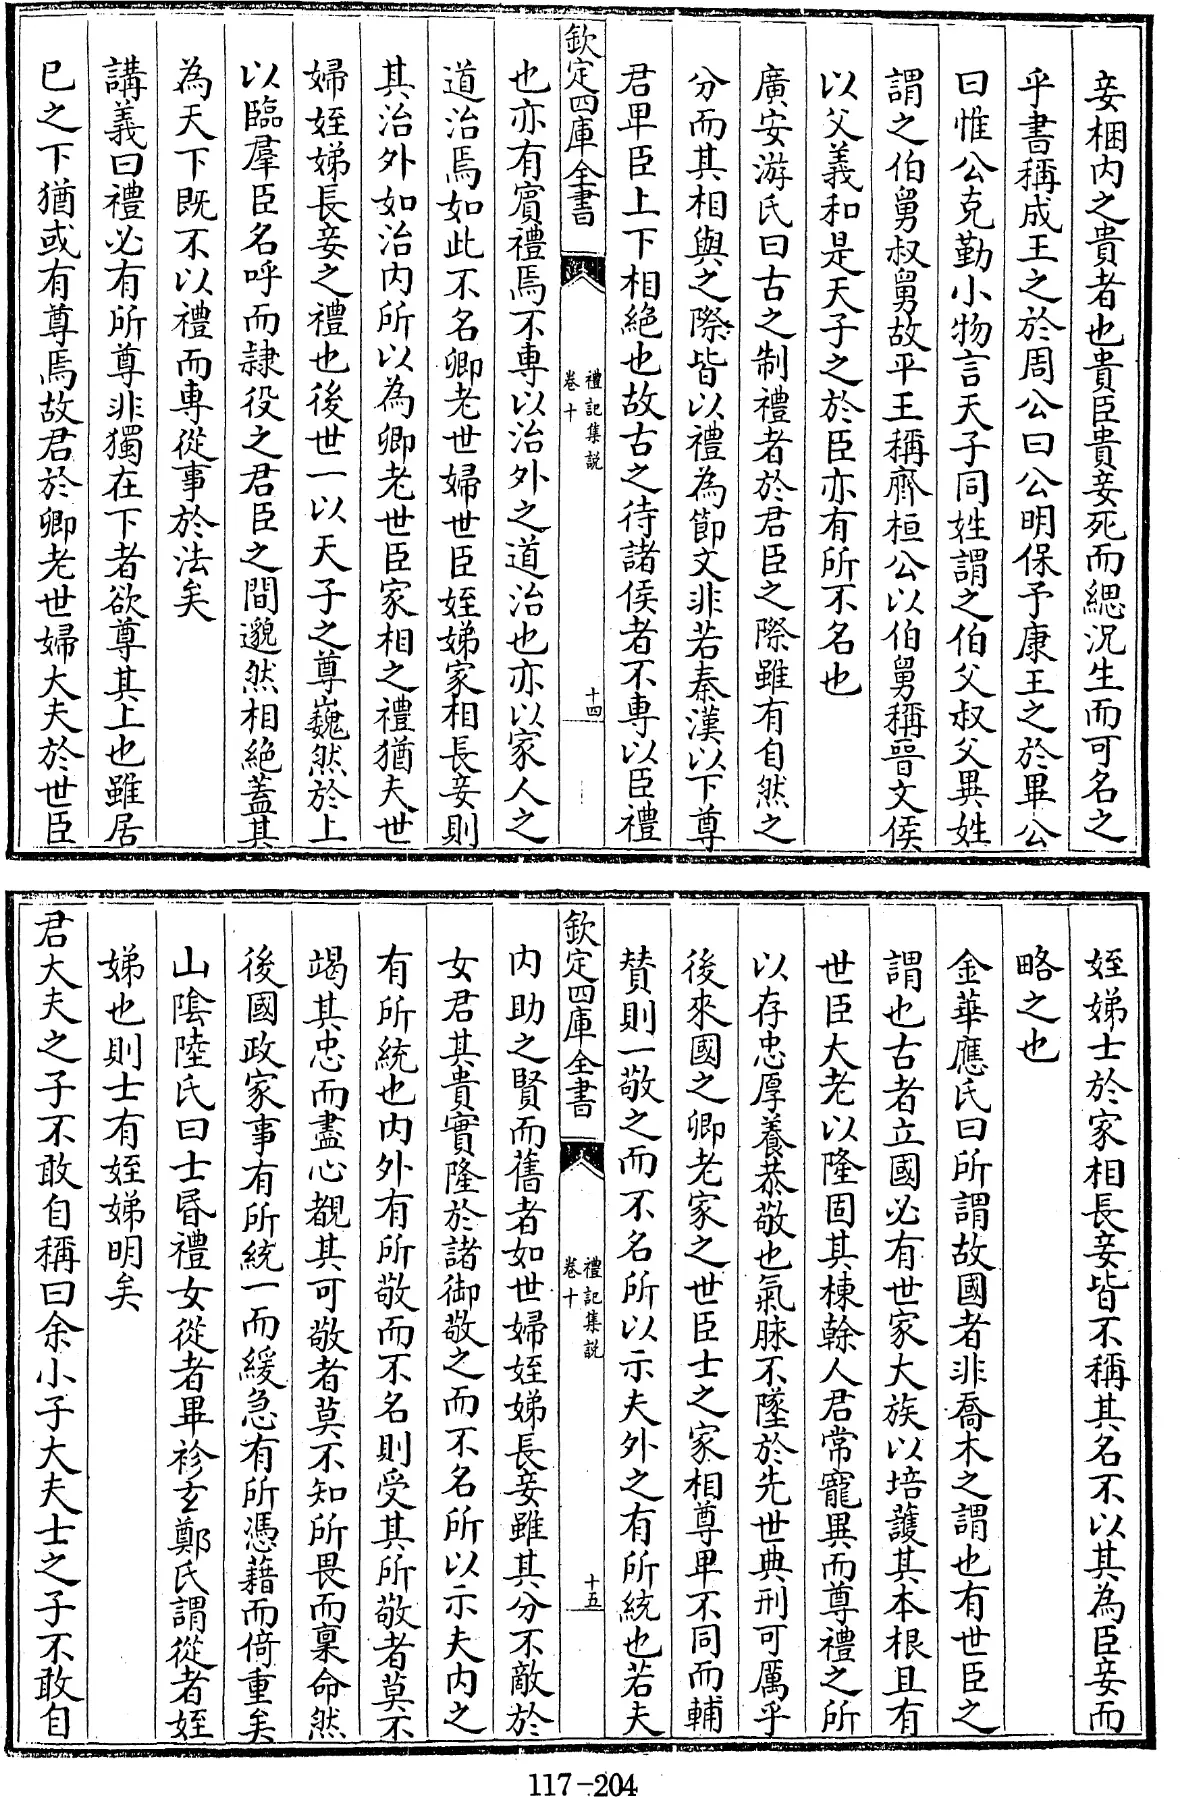 妾梱内之貴者也貴臣貴妾死而緦況生而可名之
乎書稱成王之於周公曰公明保予康王之於畢公
曰惟公克勤小物言天子同姓謂之伯父叔父異姓
謂之伯舅叔舅故平王稱齊桓公以伯舅稱晉文侯
以父義和是天子之於臣亦有所不名也
廣安游氏曰古之制禮者於君臣之際雖有自然之
分而其相與之際皆以禮為節文非若秦漢以下尊
君卑臣上下相絶也故古之待諸侯者不専以臣禮
欽定四庫全書
禮記集說
卷十
十四
也亦有賓禮焉不専以治外之道治也亦以家人之
道治焉如此不名卿老世婦世臣姪娣家相長妾則
其治外如治内所以為卿老世臣家相之禮猶夫世
婦姪娣長妾之禮也後世一以天子之尊巍然於上
以臨羣臣名呼而隷役之君臣之間邈然相絶蓋其
為天下既不以禮而専從事於法矣
講義曰禮必有所尊非獨在下者欲尊其上也雖居
已之下猶或有尊焉故君於卿老世婦大夫於世臣
姪娣士於家相長妾皆不稱其名不以其為臣妾而
略之也
金華應氏曰所謂故國者非喬木之謂也有世臣之
謂也古者立國必有世家大族以培䕶其本根且有
世臣大老以隆固其棟幹人君常寵異而尊禮之所
以存忠厚養恭敬也氣脉不墜於先世典刑可厲乎
後來國之卿老家之世臣士之家相尊卑不同而輔
賛則一敬之而不名所以示夫外之有所統也若夫
欽定四庫全書
禮記集說
卷十
十五
内助之賢而舊者如世婦姪娣長妾雖其分不敵於
女君其貴實隆於諸御敬之而不名所以示夫内之
有所統也内外有所敬而不名則受其所敬者莫不
竭其忠而盡心覩其可敬者莫不知所畏而稟命然
後國政家事有所統一而緩急有所憑藉而倚重矣
山隂陸氏曰士昏禮女從者畢袗玄鄭氏謂從者姪
娣也則士有姪娣明矣
君大夫之子不敢自稱曰余小子大夫士之子不敢自
117-204